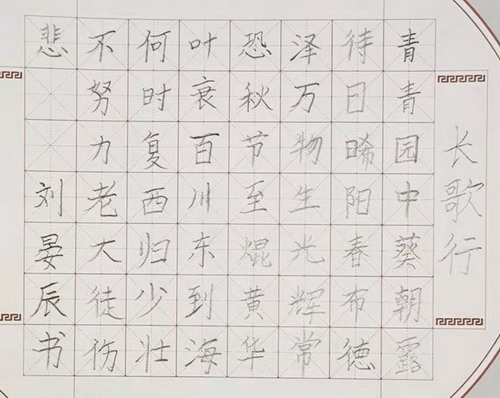 长歌行
青青园中葵朝露
待日晞阳春布德
泽万物生光辉常
恐秋节至焜黄华
叶衰百川东到海
何时复西归少壮
不努力老大徒伤
悲 刘晏辰书